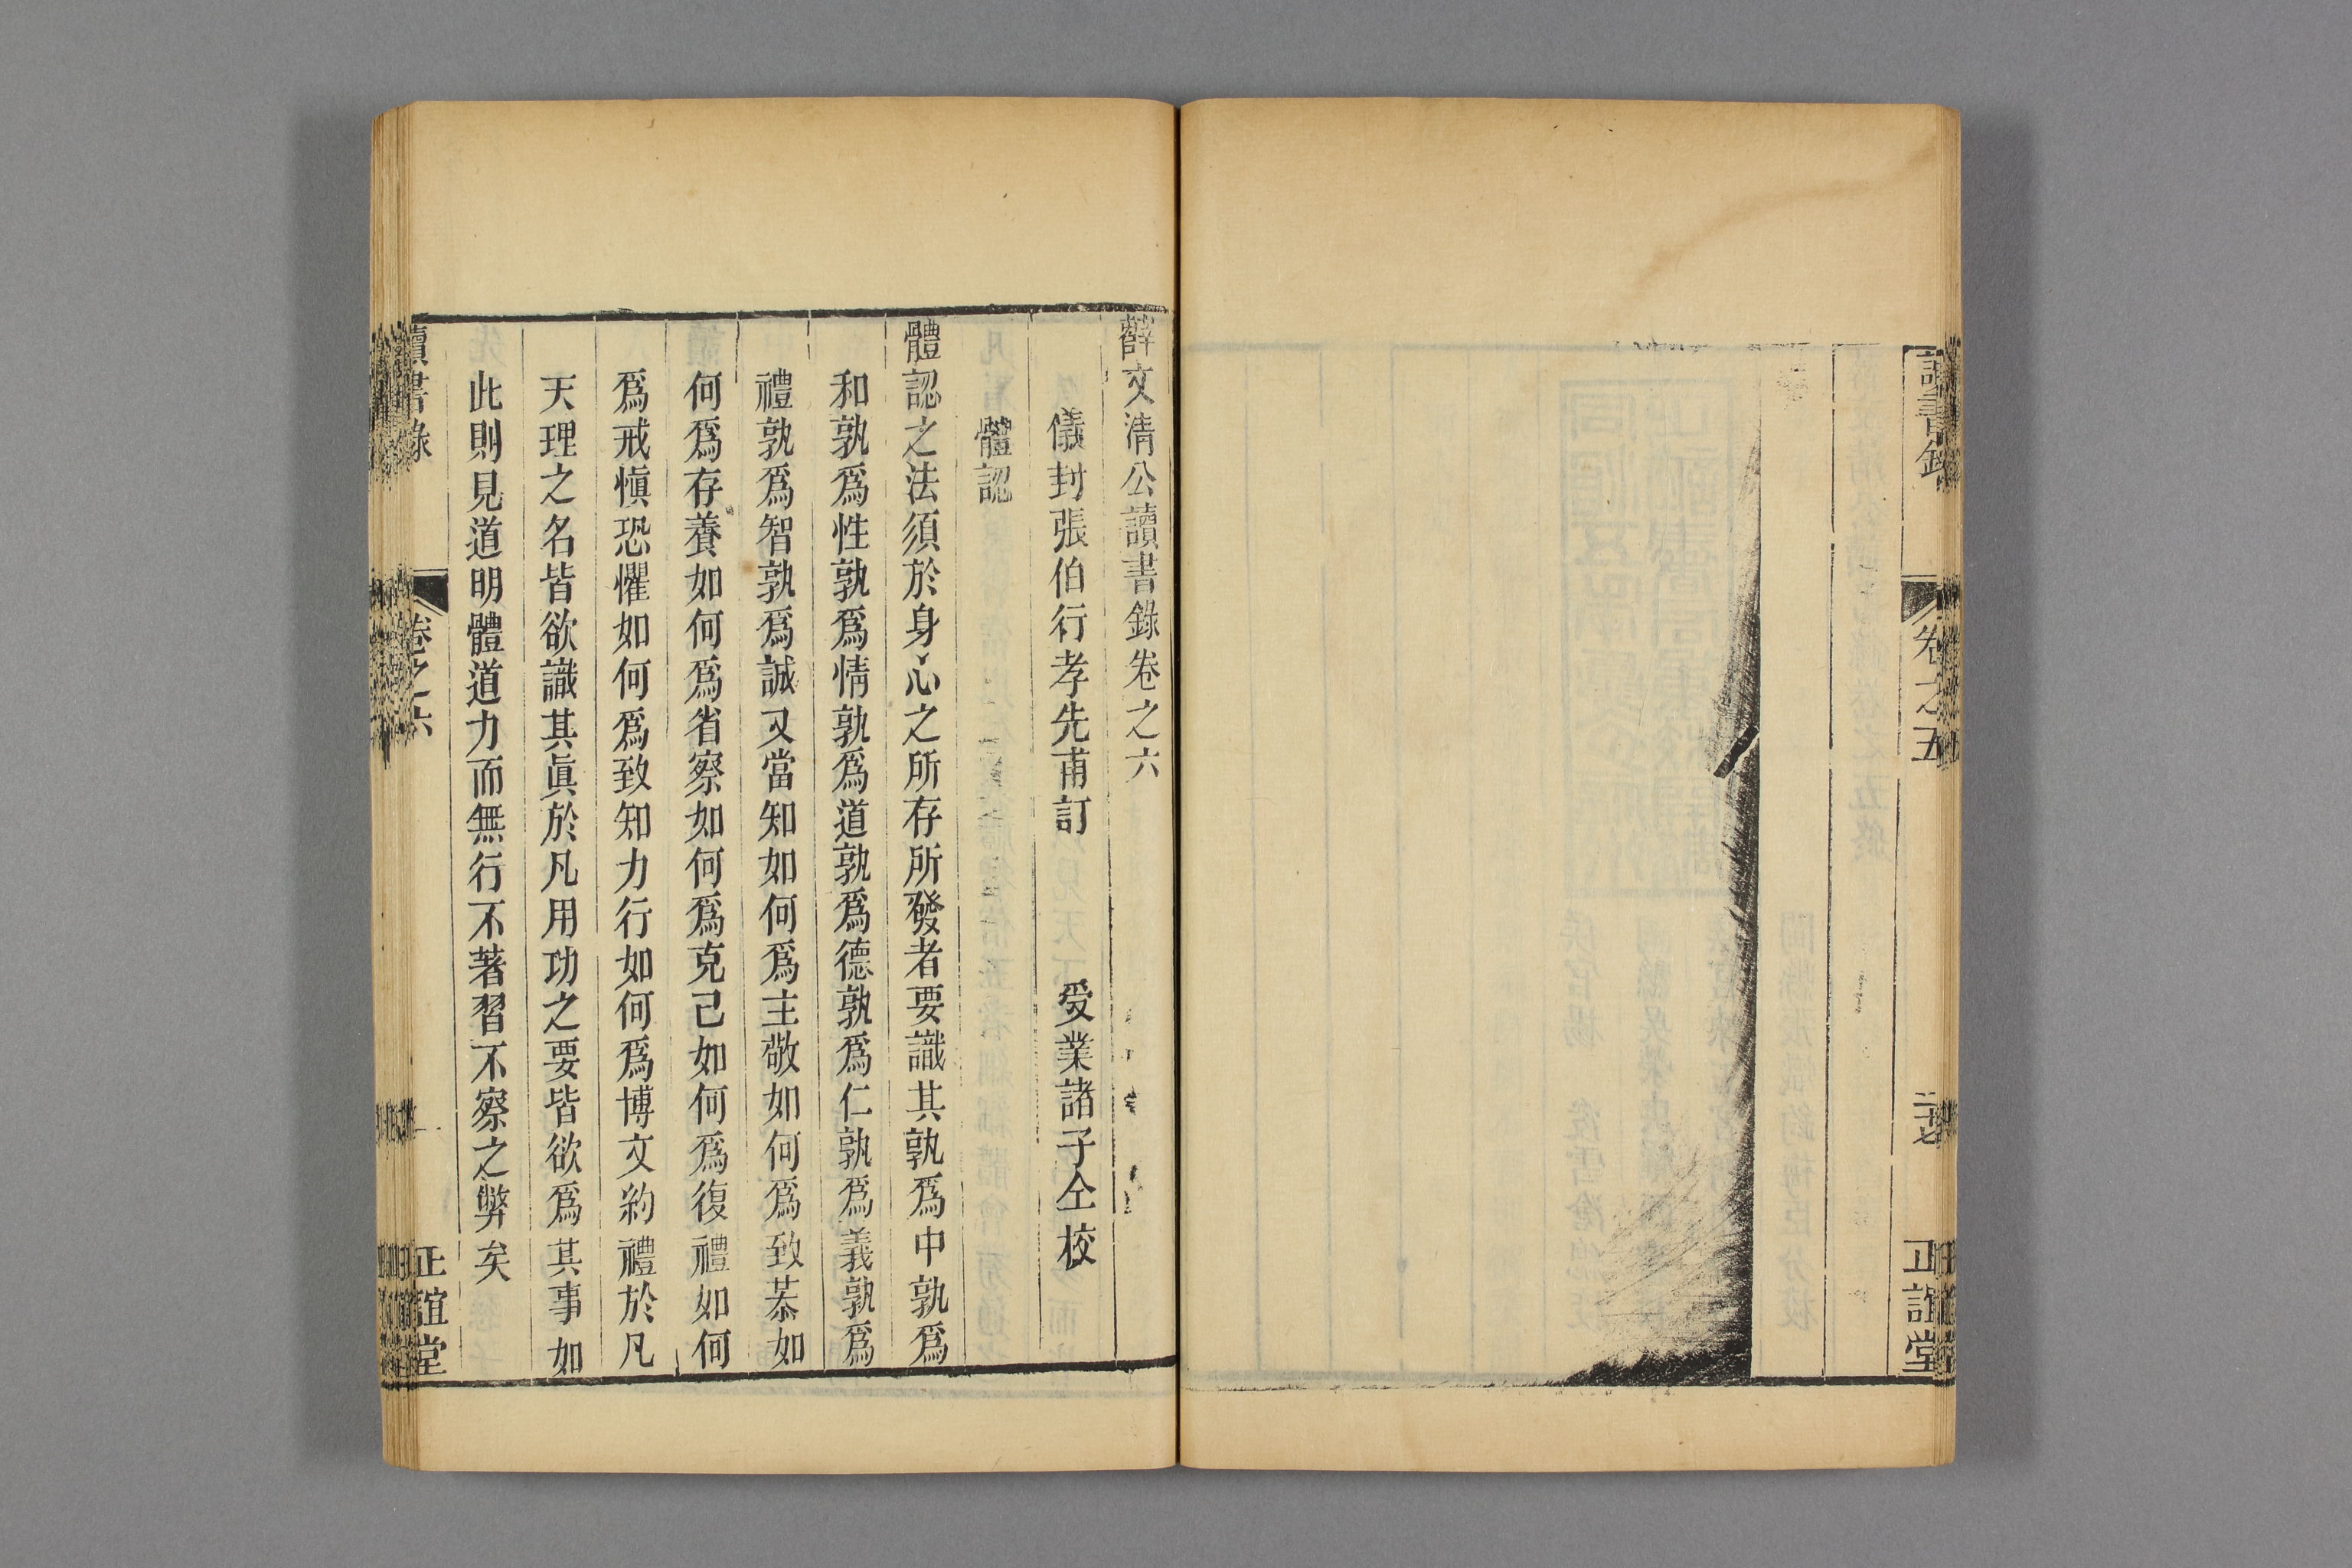 讀書錄 卷之五 二十七 正誼堂
薛文清公讀書錄卷之六
儀封張伯行孝先甫訂 受業諸子仝校
體認
體認之法須於身心之所存所發者要識其孰爲中孰爲
和孰爲性孰爲情孰爲道孰爲德孰爲仁孰爲義孰爲
禮孰爲智孰爲誠又當知如何爲主敬如何爲致恭如
何爲存養如何爲省察如何爲克己如何爲復禮如何
爲戒愼恐懼如何爲致知力行如何爲博文約禮於凡
天理之名皆欲識其眞於凡用功之要皆欲爲其事如
此則見道明體道力而無行不著習不察之弊矣
讀書錄 卷之六 一 正誼堂